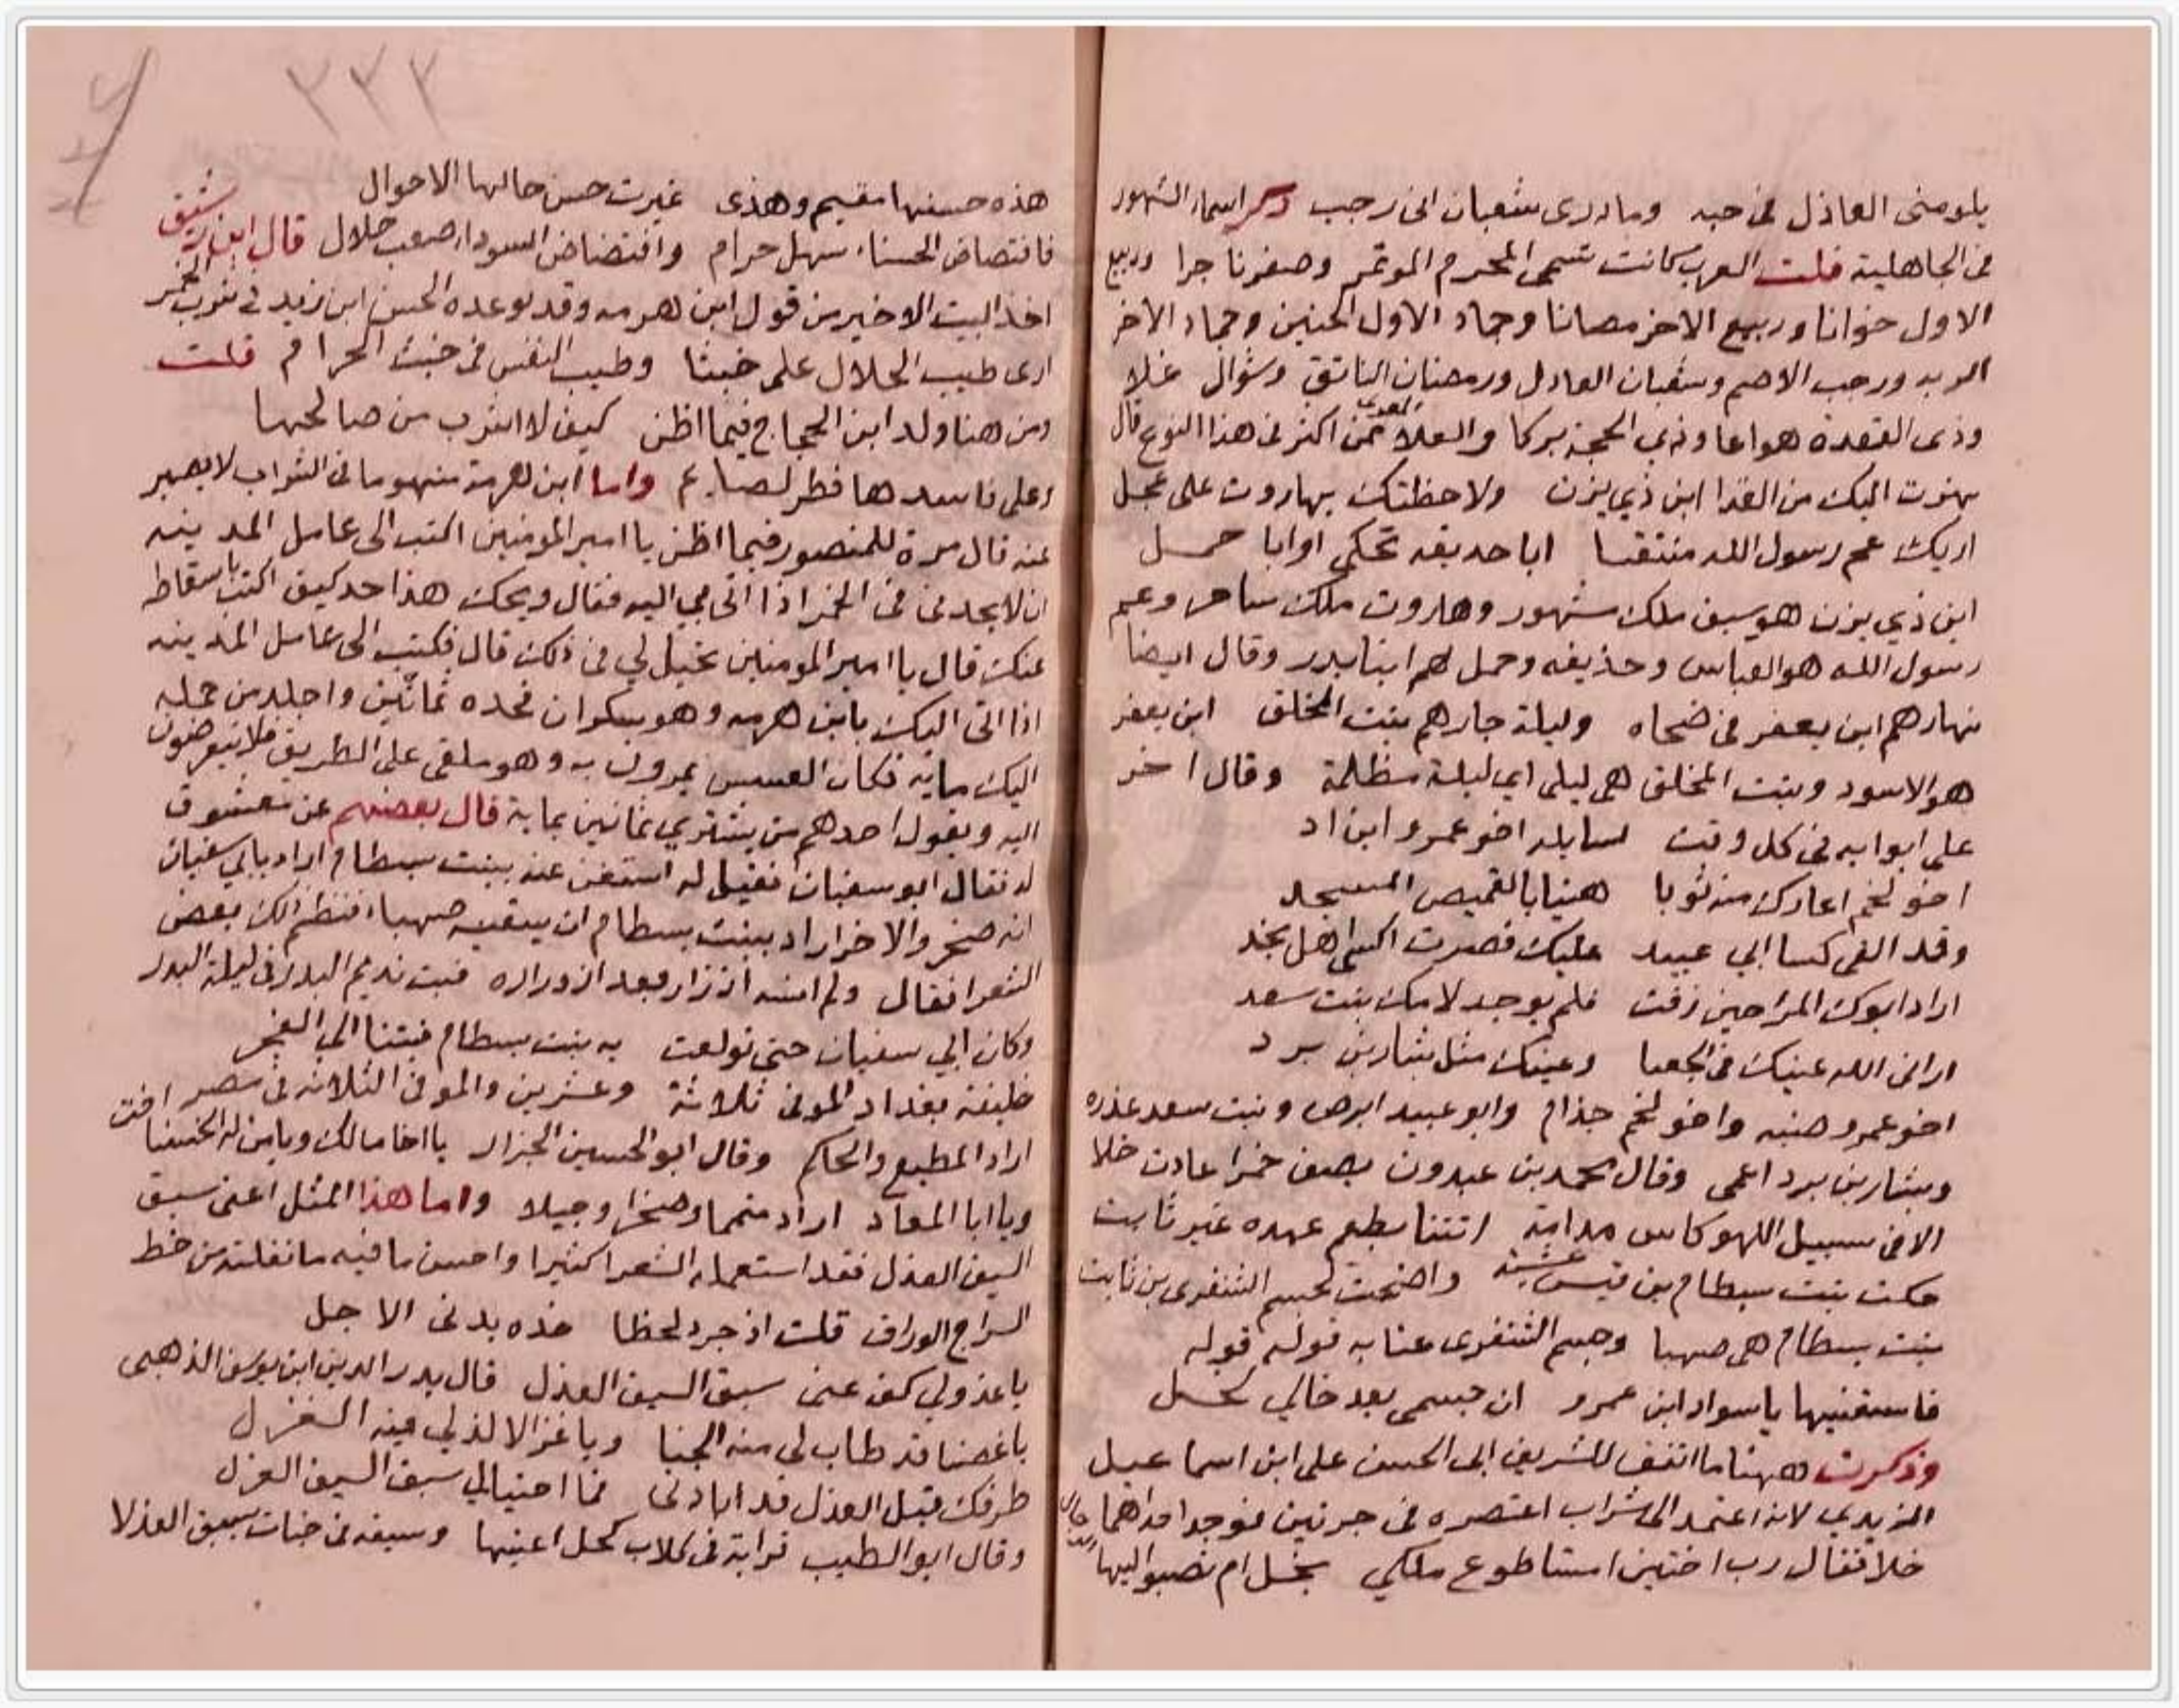 يلومنى العاذل فى حبه وما درى شعبان انى رجب ذكر اسماء الشهور
فى الجاهلية قلت العرب كانت تسمى المحرم الموتمر وصفرناجرا وربيع
الاول خوانا وربيع الاخر مصانا وجماد الاول الحنين وجماد الاخر
الربه ورجب الاصم وشعبان العادل ورمضان الناتق وشوال غلا
وذى القعدة هواعا وذي الحجة بركا والعلا المعرى ممن اكثر فى هذا النوع قال
اليك من ابن ذي يزن ولاحظتك بهاروت على عجل
اريك عم رسول الله منتقبا ابا حديقه تحكى اوابا حمل
ابن ذي يزن هو سيف ملك مشهور وهاروت ملك ساحر وعم
رسول الله هو العباس وحذيفه وحمل هم ابنا بدر وقال ايضا
نهارهم ابن يعفر فى ضحاه وليلة جارهم بنت المحلق ابن يعفر
هو الاسود وبنت المحلق هى ليلى اي ليلة مظلمة وقال اخر
على ابوابه فى كل وقت لسايله اخو عمرو ابن اد
اخو لخم اعارك منه ثوبا هنيا بالقميص المسجد
وقد القى كسا ابي عبيد عليك فصرت اكسى اهل نجد
اراد ابوك امك حين زفت فلم يوجد لامك بنت سعد
ارانى الله عينيك فى وعينك مثل بشار بن برد
اخو عمرو ضبه واخو لخم جذام وابو عبيد ابرص وبنت سعد عذره
وبشار بن برد اعمى وقال محمد بن عبدون يصف خمرا عادت خلا
الا فى سبيل اللهو كاس مدامة اتتنا بطعم عهده غير ثابت
حكت بنت بسطام بن قيس عشية واضحت كجسم الشنفرى بن ثابت
بنت بسطام هى صهبا وجسم الشنفرى عنا به قوله قوله
فاسقنيها يا سواد ابن عمرو ان جسمى بعد خالي لخل
وذكرت ههنا ما اتفق للشريف ابى الحسن على ابن اسماعيل
الزيدي لانه اعتمد الى شراب اعتصره فى جرتين فوجد احداهما
خلا فقال رب اختين ملكي بخل ام نصبو اليها
٣٣٣
هذه حسنها مقيم وهذى غيرت حسن حالها الاحوال
فافتضاض الحسناء سهل حرام وافتضاض السوداء صعب حلال قال ابن رشيق
اخذ البيت الاخير من قول ابن هرمه وقد توعده الحسن ابن زيد فى شرب الخمر
ارى طيب الحلال على خبثا وطيب النفس فى خبث الحرام قلت
ومن هنا ولد ابن الحجاج فيما اظن كيف لا اشرب من صالحها
وعلى فاسدها فطر لصايم واما ابن هرمة منهوما فى الشراب لا يصبر
عنه قال مرة للمنصور فيما اظن يا امير المومنين اكتب الى عامل المدينه
ان لا يحدنى فى الخمر اذا اتى بي اليه فقال ويحك هذا حد كيف اكتب باسقاطه
عنك قال يا امير المومنين تحيل لي فى ذلك قال فكتب الى عامل المدينه
اذا اتى اليك بابن هرمه وهو سكران فحده ثمانين واجلد من حمله
اليك مايه فكان العسس يمرون به وهو ملقى على الطريق فلا يتعرضون
اليه ويقول احدهم من يشتري ثمانين بماية قال بعضهم عن معشوق
له فقال ابو سفيان فقيل له استغن عنه ببنت بسطام اراد بابي سفيان
انه صخر والاخر اراد ببنت بسطام ان يسقيه صهباء فنظم ذلك بعض
الشعرا فقال ولم انسه اذ زار بعد ازوراره فبت نديم البدر فى ليلة البدر
وكان ابي سفيان حتى تولعت به بنت بسطام فبتنا الى الفجر
خليفة بغداد الموفى ثلاثة وعشرين والموفى الثلاثه فى مصر
اراد المطيع والحاكم وقال ابو الحسين الجزار يا اخا مالك ويا من له الخنسا اخت
ويا ابا المعاد اراد متمما وصخرا وجبلا واما هذا المثل اعنى سبق
السيف العذل فقد استعمله الشعرا كثيرا واحسن ما فيه ما نقلته من خط
السراج الوراق قلت اذ جرد لحظا حده يدنى الاجل
يا عذولي كف عنى سبق السيف العذل قال بدر الدين ابن يوسف الذهبى
يا غصنا قد طاب لى منه الجنا ويا غزالا لذ لي فيه الغزل
طرفك قبل العذل قد ابادنى فما احتيالي سبق السيف العذل
وقال ابو الطيب كحل اعينها وسيفه فى سبق العذلا